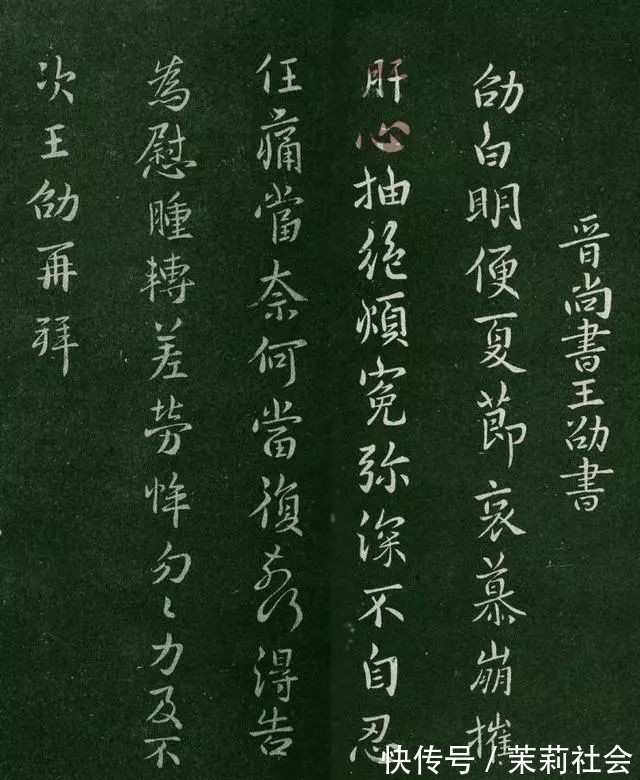 晋尚書王劭書
劭白明便夏節哀慕崩摧
肝心抽絕煩冤弥深不自忍
任痛當奈何當復奈何得告
為慰腫轉差勞悴勿〻力及不
次王劭再拜
快传号/茉莉社会